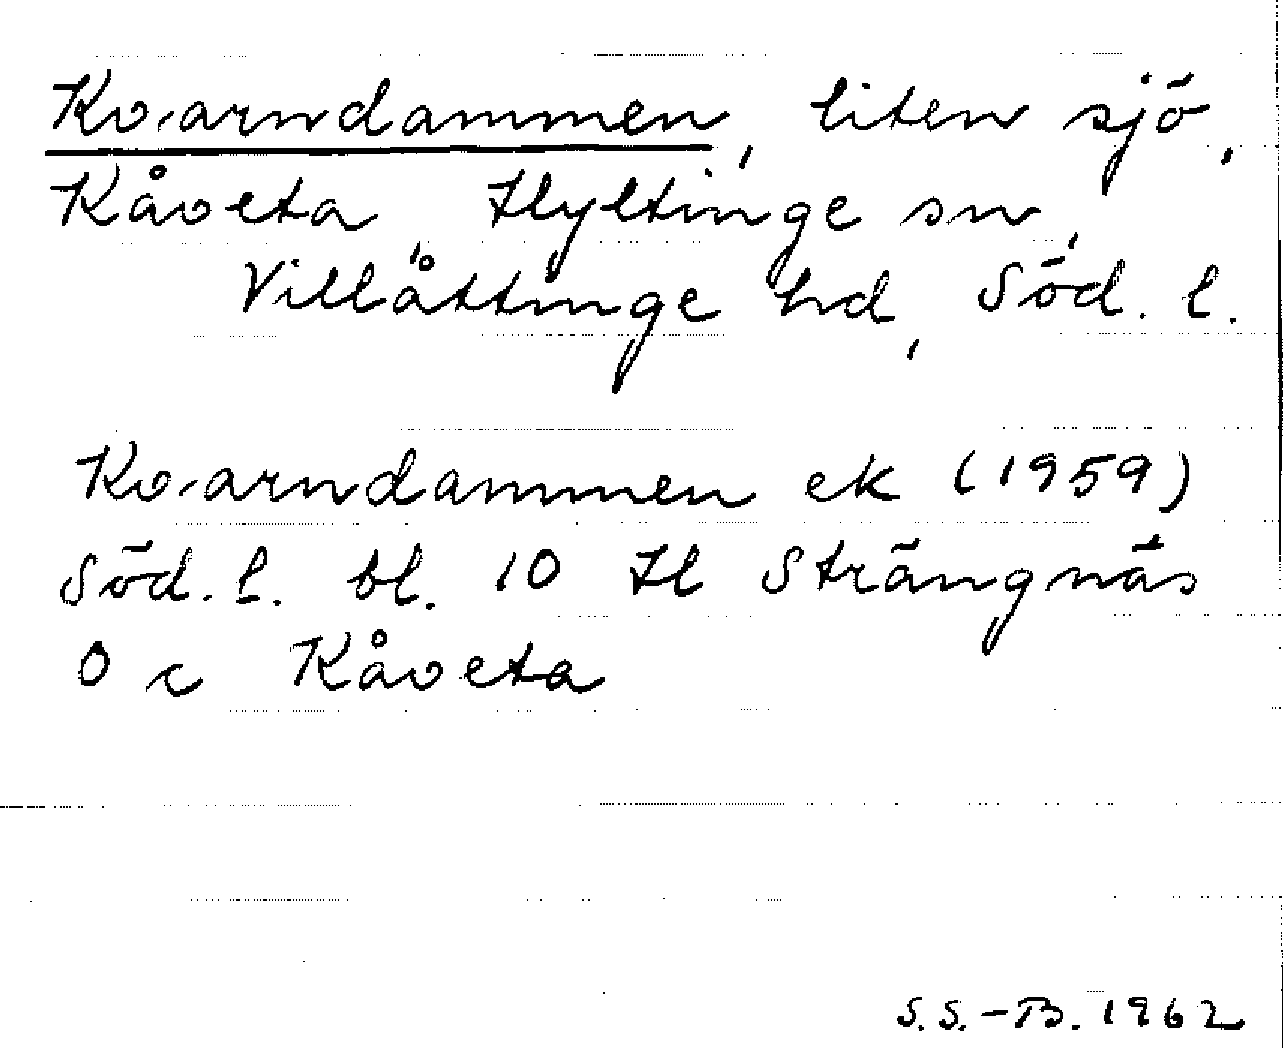 Kvarndammen, liten sjö,
Kåveta, Hyltinge sn,
Villåttinge hd, Söd. l.
Kvarndammen ek (1959)
Söd. l. bl. 10 Il Strängnäs
O c Kåveta
S.S.-B. 1962